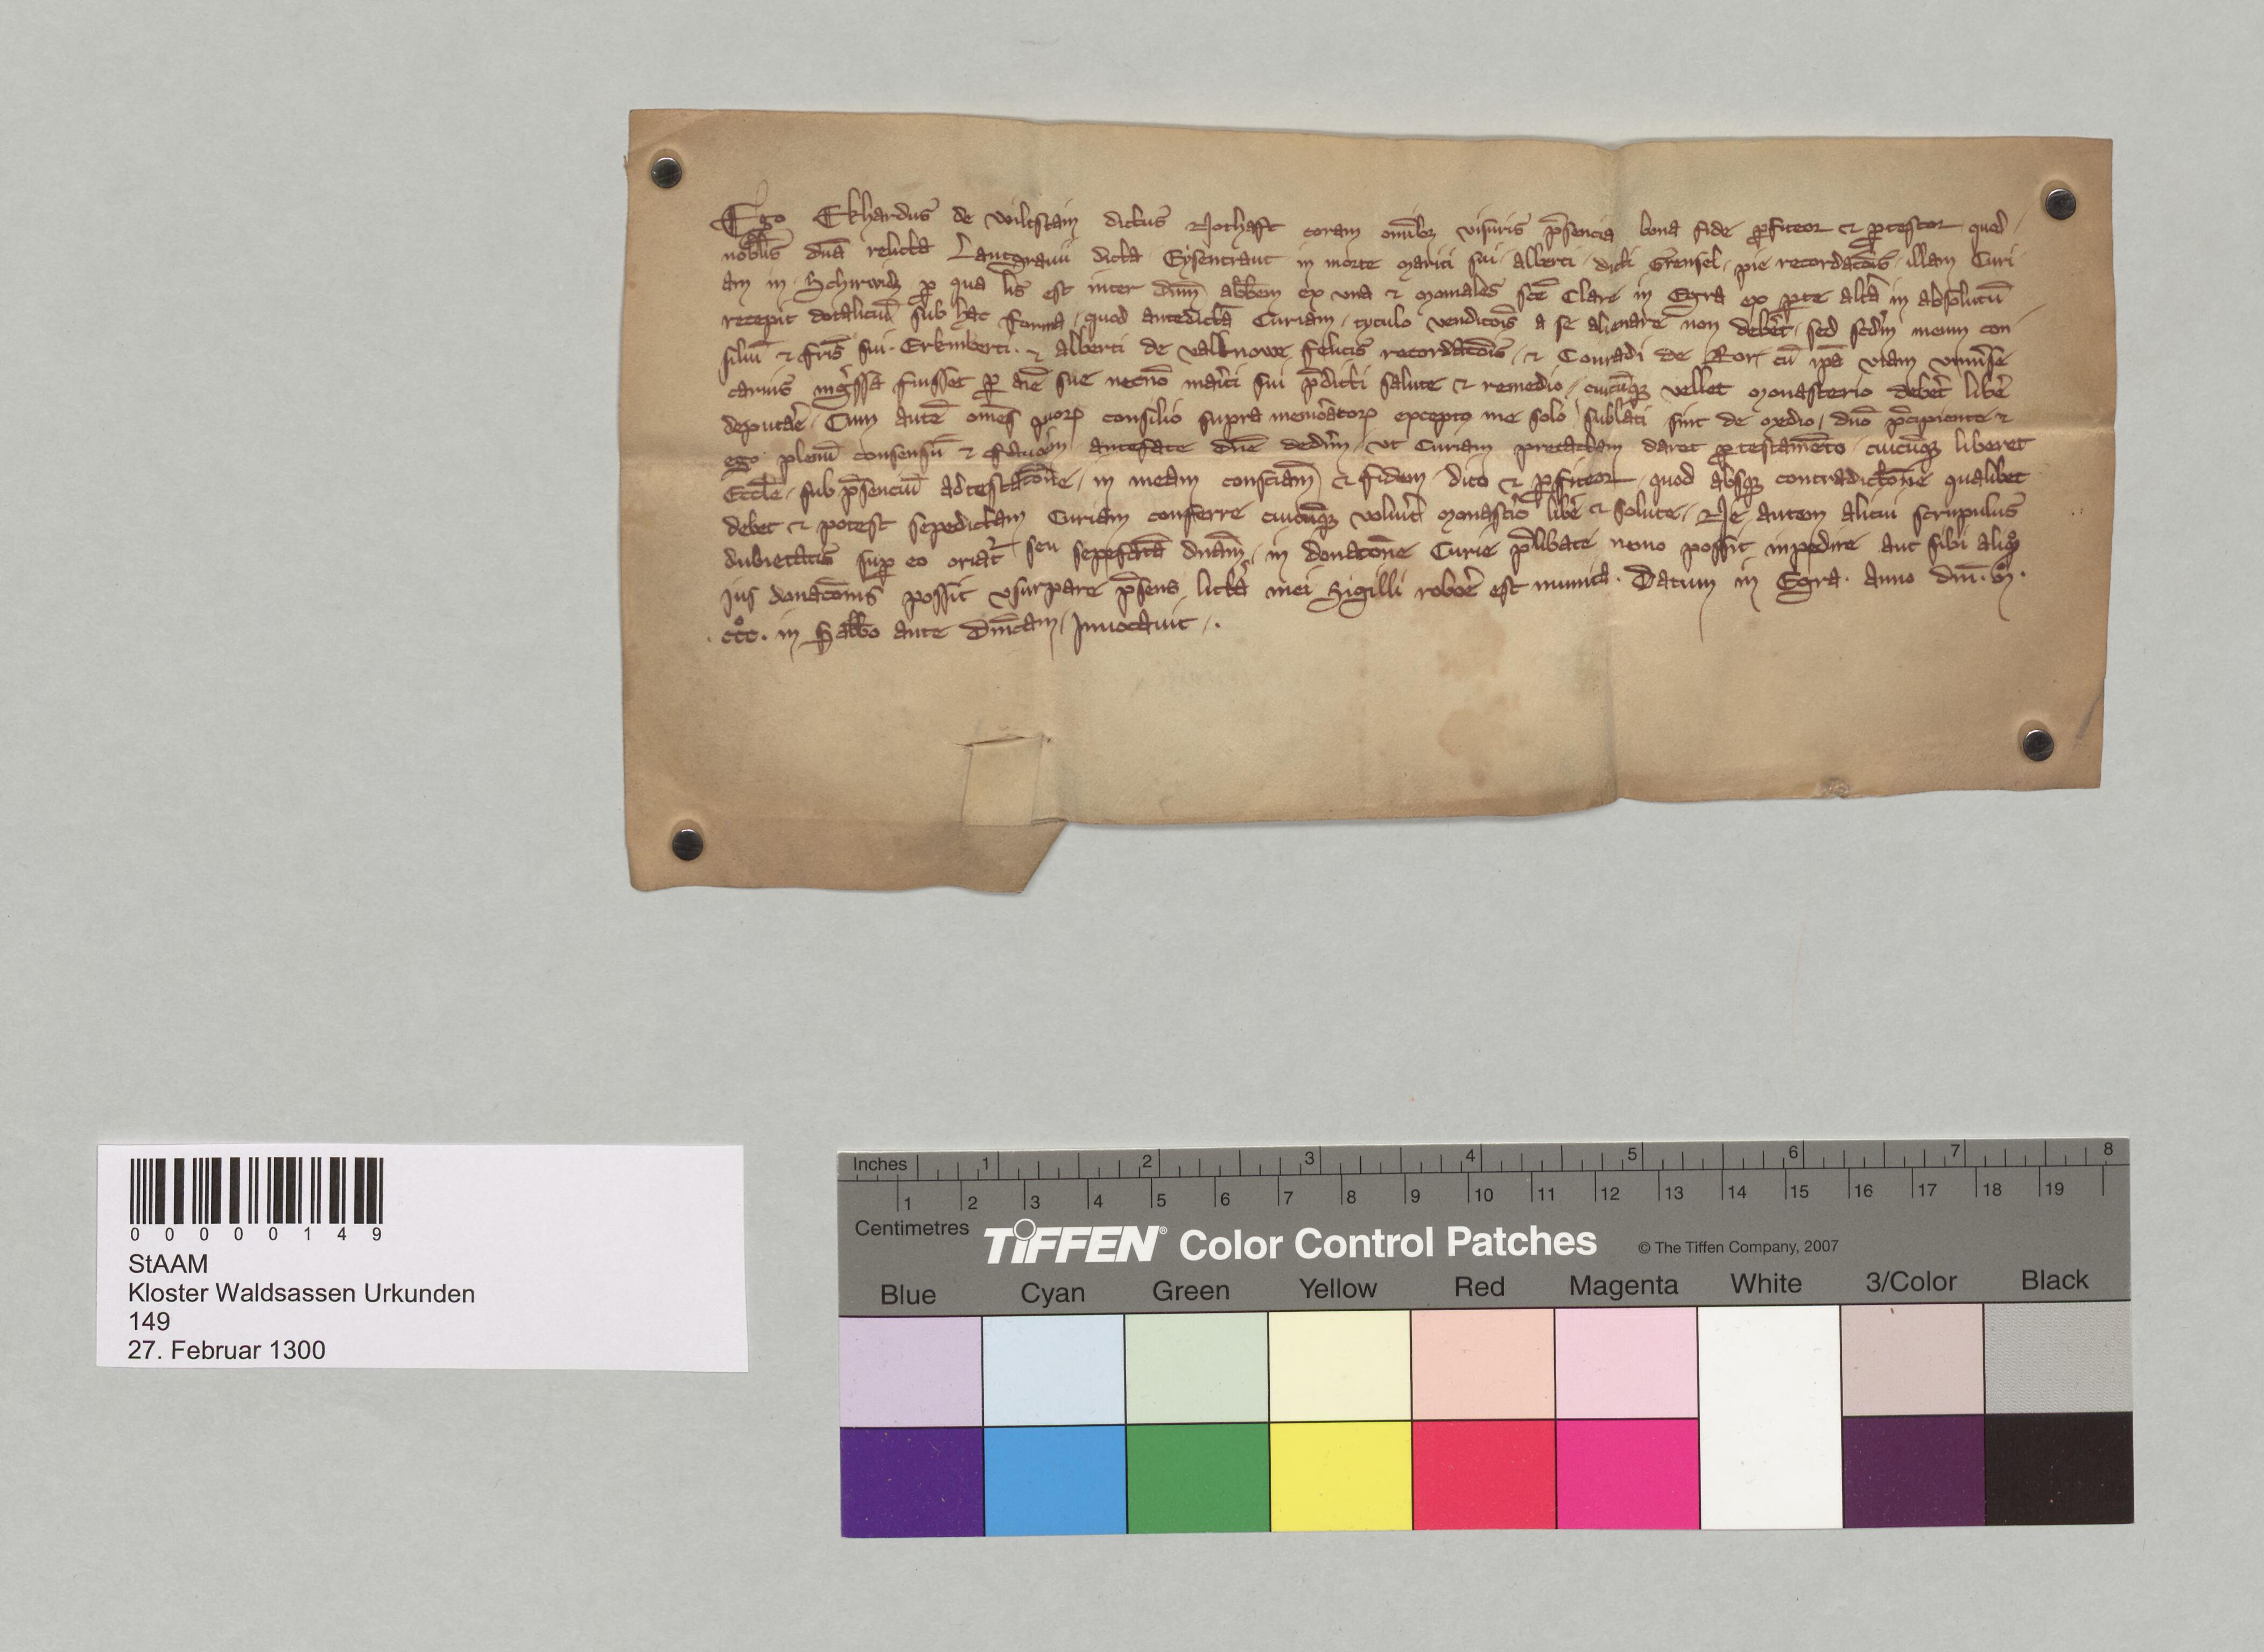 Ego Ekhardus de Wiltstain dictus Nothaft coram omībȝ visuris p̄sencia bona fide ꝓfiteor ⁊ ꝓtestor quod
nobl̄is dn̄a relicta Lantgravii dicta Eysentraut in morte mariti sui alberti dicti Grensel pie recordac̄ois illam Curi
am in Schirwidȝ ꝓ qua lis est inter dnm̄ abb̄em ex vna ⁊ moniales sc̄e Clare in Egra ex ꝑte alt̄a in absolutū
recepit dotaliciū sub hac forma quod antedictā Curiam tytulo vendic̄ois a se alienare non debe͛t sed scd̄m meum con
siliū ⁊ fr̄is sui Erkmberti ⁊ alberti de valknowe felicis recordac̄ois ⁊ Conradi de Ror cū ip̄a viam vniu͛se
carnis ing͛ssa fuisset ꝓ aīe sue necnō mar̄iti sui p̄dicti salute ⁊ remedio cuicūqȝ vellet monasterio debe͛t libe͛
deputar̄e Cum autē om̄es quoꝝ consilio supra memoratoꝝ excepto me solo sublati sint de medio dn̄o p̄cipiente ⁊
ego plenū consensū ⁊ fauorem antefate dn̄e dedīm vt Curiam pretactam daret ꝓ testamēto cuicūqȝ liberet
Eccl̄e sub p̄senciū adtestac̄one in meam consciam̄ ⁊ fidem dico ⁊ ꝓfiteor quod absqȝ contradicc̄one qualibet
debet ⁊ potest sepedictam Curiam conferre cuicūqȝ volu͛it monast͛io libe͛ ⁊ solute Ne autem alicui scrupulus
dubietatis suꝑ eo oriat͛ seu sepefatā dnam̄ in donac̄one Curie p̄libate nemo possit inpedire aut sibi aliqd̄
jus donac̄onis possit vsurpare p̄sens litt͛a mei Sigilli robor̄e est munita Datum in Egra Anno dn̄i M̊
ccc̊ in Sabb̄o ante Dn̄icam Jnuocauit
0 0 0 0 0 1 4 9
StAAM
Kloster Waldsassen Urkunden
149
27. Februar 1300
Inches 1 2 3 4 5 6 7 8
1 2 3 4 5 6 7 8 9 10 11 12 13 14 15 16 17 18 19
Centimetres
TIFFEN® Color Control Patches © The Tiffen Company, 2007
Blue Cyan Green Yellow Red Magenta White 3/Color Black